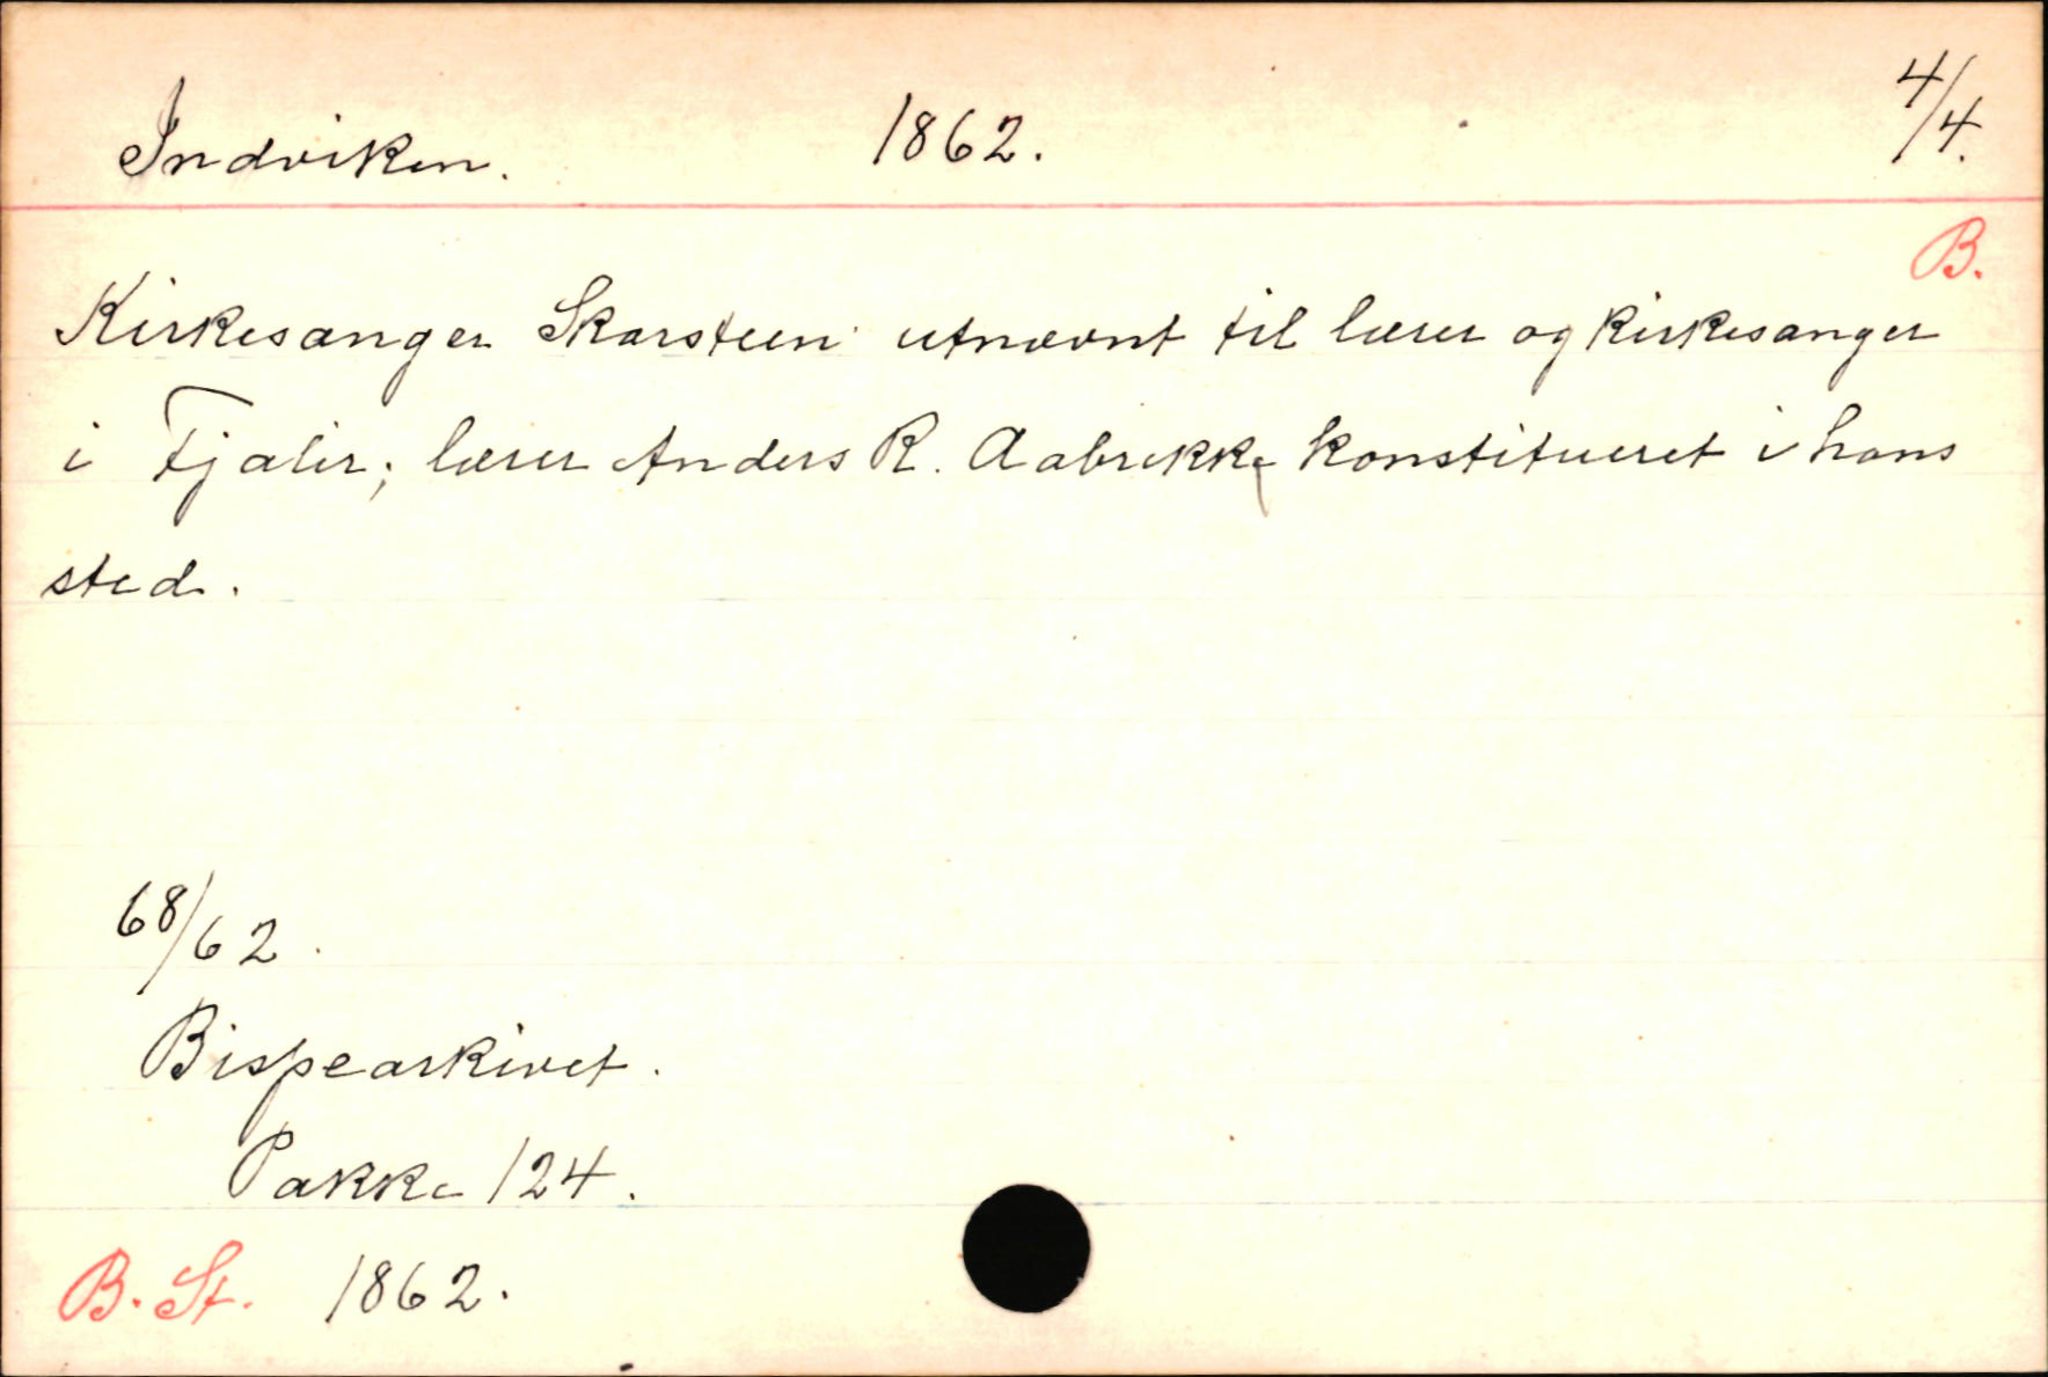 Indviken. 1862. 4/4.
B.
Kirkesanger Skarsteen utnævnt til lærer og kirkesanger
i Fjaler; lærer Anders R. Aabrekke konstitueret i hans
sted.
68/62.
Bispearkivet.
Pakke 124.
B. St. 1862.